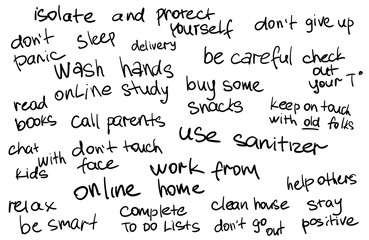 isolate and protect yourself
don't give up
don't panic
sleep
delivery
be careful
check out your T°
wash hands
online study
buy some snacks
read books
call parents
keep on touch with old folks
use sanitizer
chat with kids
don't touch face
work from home
online
help others
relax
be smart
complete TO DO LISTS
clean house
don't go out
stay positive